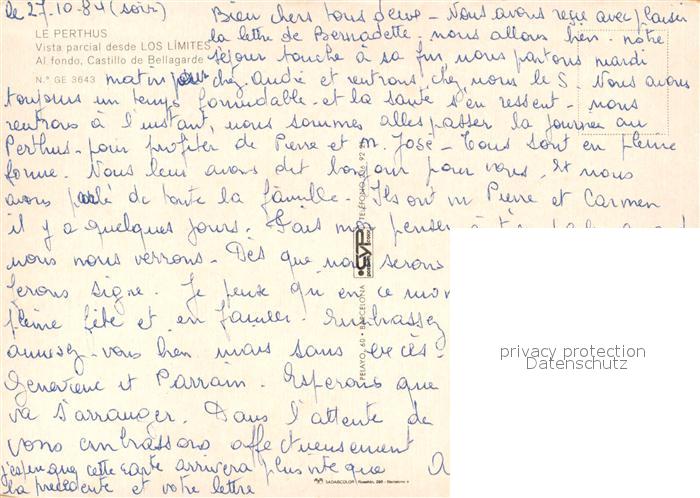 le 27-10-84 (soir)
LE PERTHUS
Vista parcial desde LOS LÍMITES
Al fondo, Castillo de Bellagarde
N.° GE 3643
Bien chers tous deux - Nous avons reçu avec plaisir
la lettre de Bernadette - nous allons bien - notre
séjour touche à sa fin, nous partons mardi
matin pour chez André et rentrons chez nous le 5. Nous avons
toujours un temps formidable - et la santé s'en ressent - nous
rentrons à l'instant, nous sommes allés passer la journée au
Perthus - pour profiter de Pierre et M. José - Tous sont en pleine
forme. Nous leur avons dit bonjour pour vous. Et nous
avons parlé de toute la famille. Ils ont vu Pierre et Carmen
il y a quelques jours.
nous nous verrons - Dès que nous serons
ferons signe. Je pense qu'en ce mo
pleine fête et en famille. Embrassez
amusez-vous bien mais sans excès -
Geneviève et Parrain. Esperons que
va s'arranger. Dans l'attente de
vous embrassons affectueusement
j'espère que cette carte arrivera plus vite que
la précédente et votre lettre
PELAYO, 60 • BARCELONA
CYP
TELEFONO
SADAGCOLOR
privacy protection
Datenschutz